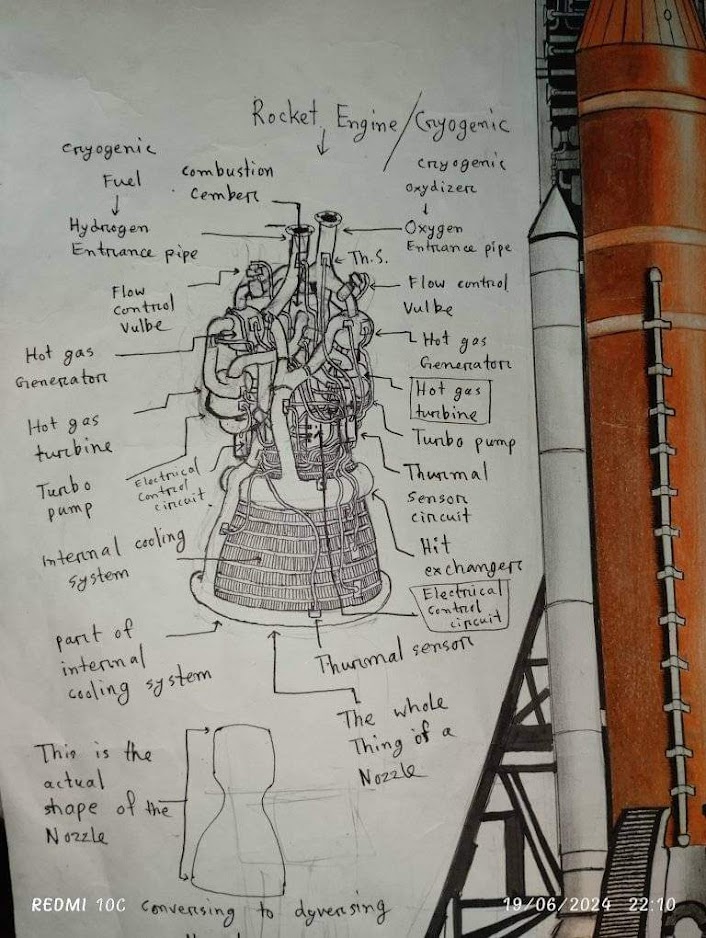 Rocket Engine/Cryogenic
cryogenic
Fuel
Hydrogen
Entrance pipe
combustion
Cember
cryogenic
oxydizer
Oxygen
Entrance pipe
Th.S.
Flow
control
Vulbe
Flow control
Vulbe
Hot gas
Generator
Hot gas
Generator
Hot gas
turbine
Hot gas
turbine
Turbo
pump
Turbo pump
Electrical
control
circuit
Thurmal
sensor
circuit
Internal cooling
system
Hit
exchanger
Electrical
control
circuit
part of
internal
cooling system
Thurmal sensor
The whole
Thing of a
Nozzle
This is the
actual
shape of the
Nozzle
converging to dyverging
REDMI 10C
19/06/2024 22:10